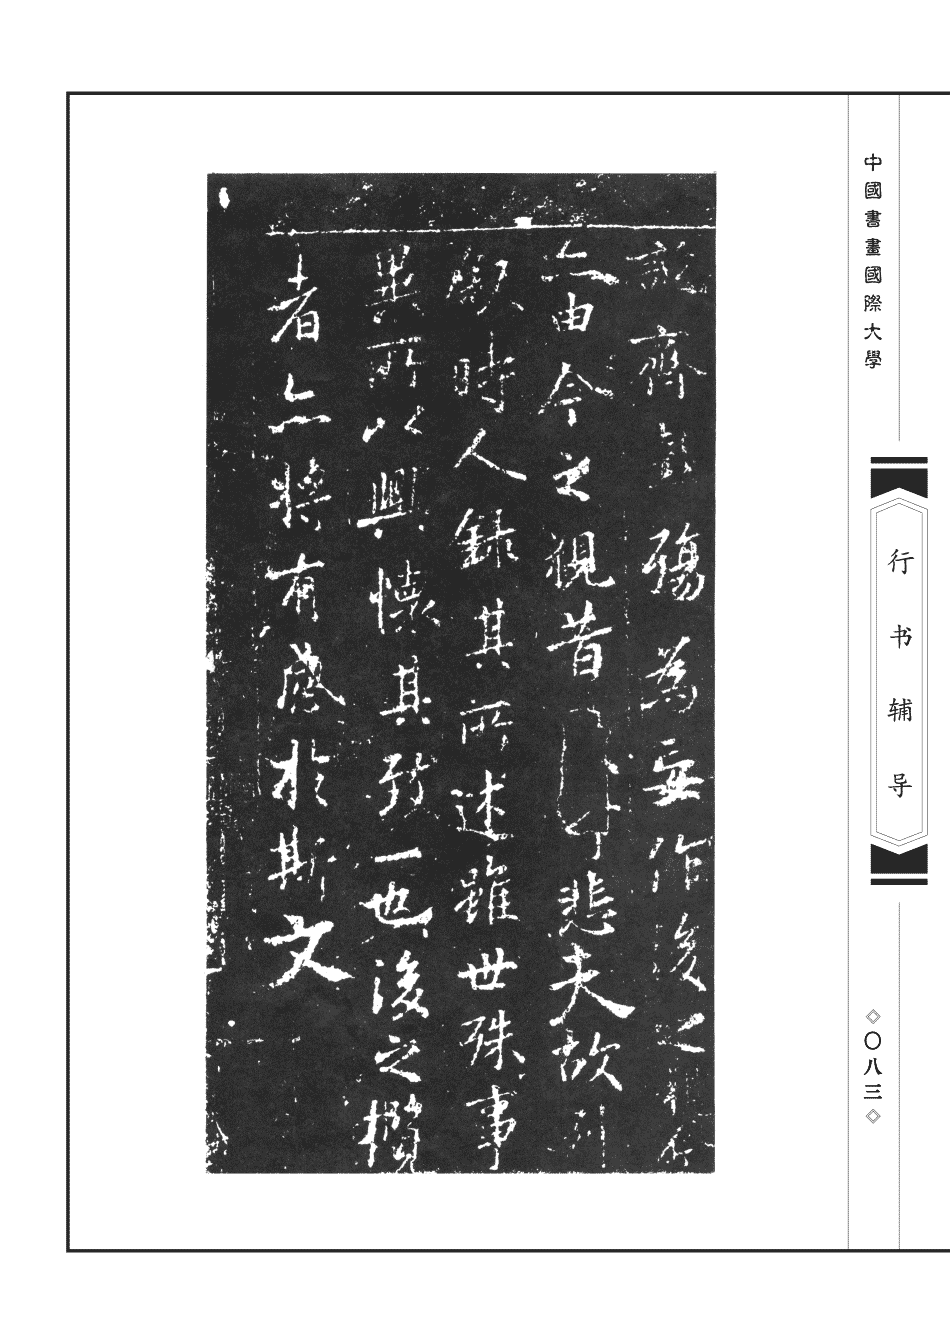 中國書畫國際大學
行书辅导
◇〇八三◇
誕齊彭殤為妄作後之視今
亦由今之視昔悲夫故列
敘時人錄其所述雖世殊事
異所以興懷其致一也後之攬
者亦將有感於斯文